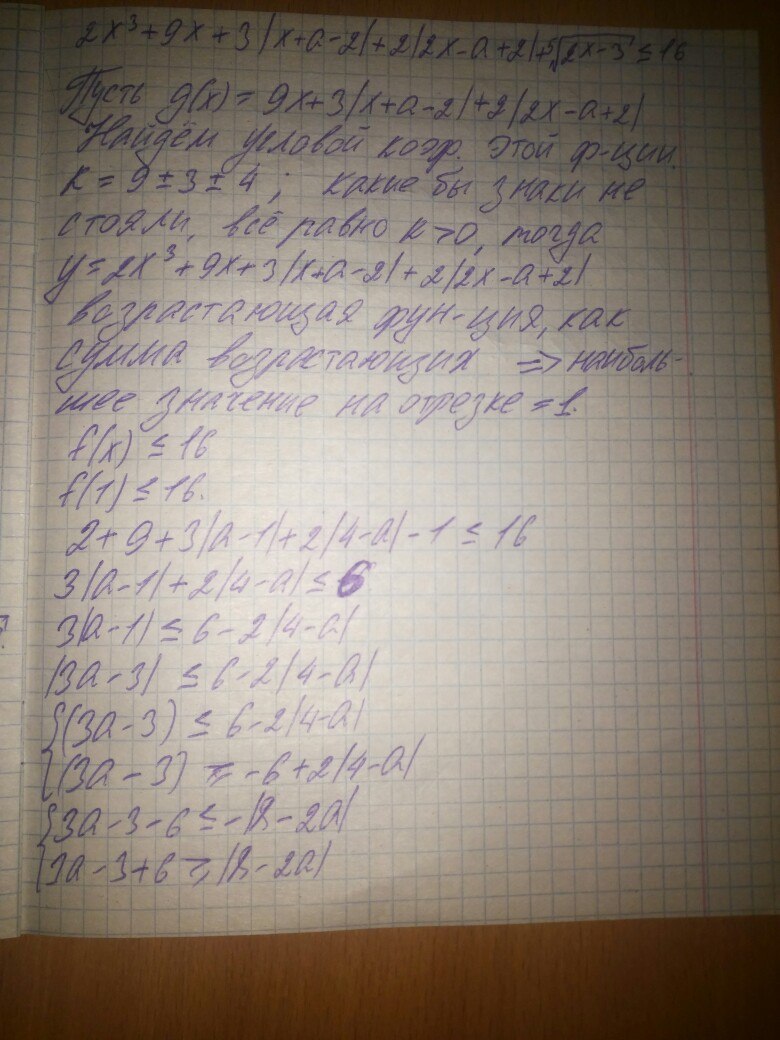 2x³+9x+3|x+a-2|+2|2x-a+2|+⁵√2x-3 ≤16
Пусть g(x)=9x+3|x+a-2|+2|2x-a+2|
Найдём угловой коэф. этой ф-ции.
k=9±3±4; какие бы знаки не
стояли, всё равно k>0, тогда
y=2x³+9x+3|x+a-2|+2|2x-a+2|
возрастающая фун-ция, как
сумма возрастающих => наиболь-
шее значение на отрезке =1.
f(x)≤16
f(1)≤16.
2+9+3|a-1|+2|4-a|-1≤16
3|a-1|+2|4-a|≤6
3|a-1|≤6-2|4-a|
|3a-3|≤6-2|4-a|
{(3a-3)≤6-2|4-a|
{(3a-3)≥-6+2|4-a|
{3a-3-6≤-|8-2a|
{3a-3+6≥|8-2a|